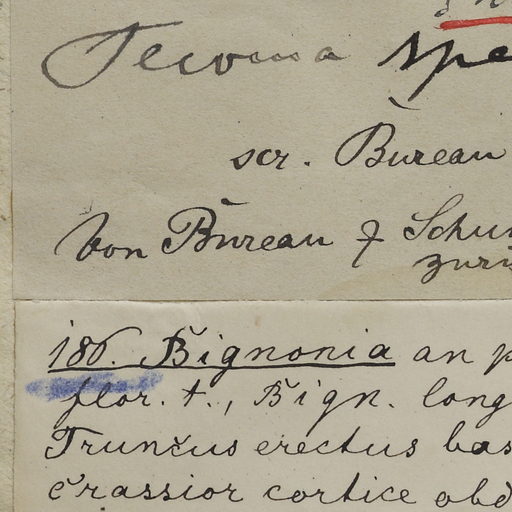 Tecoma spe
scr. Bureau
von Bureau & Schu
zurü
186. Bignonia an p
flor. t., Bign. long
Truncus erectus bas
crassior cortice obd